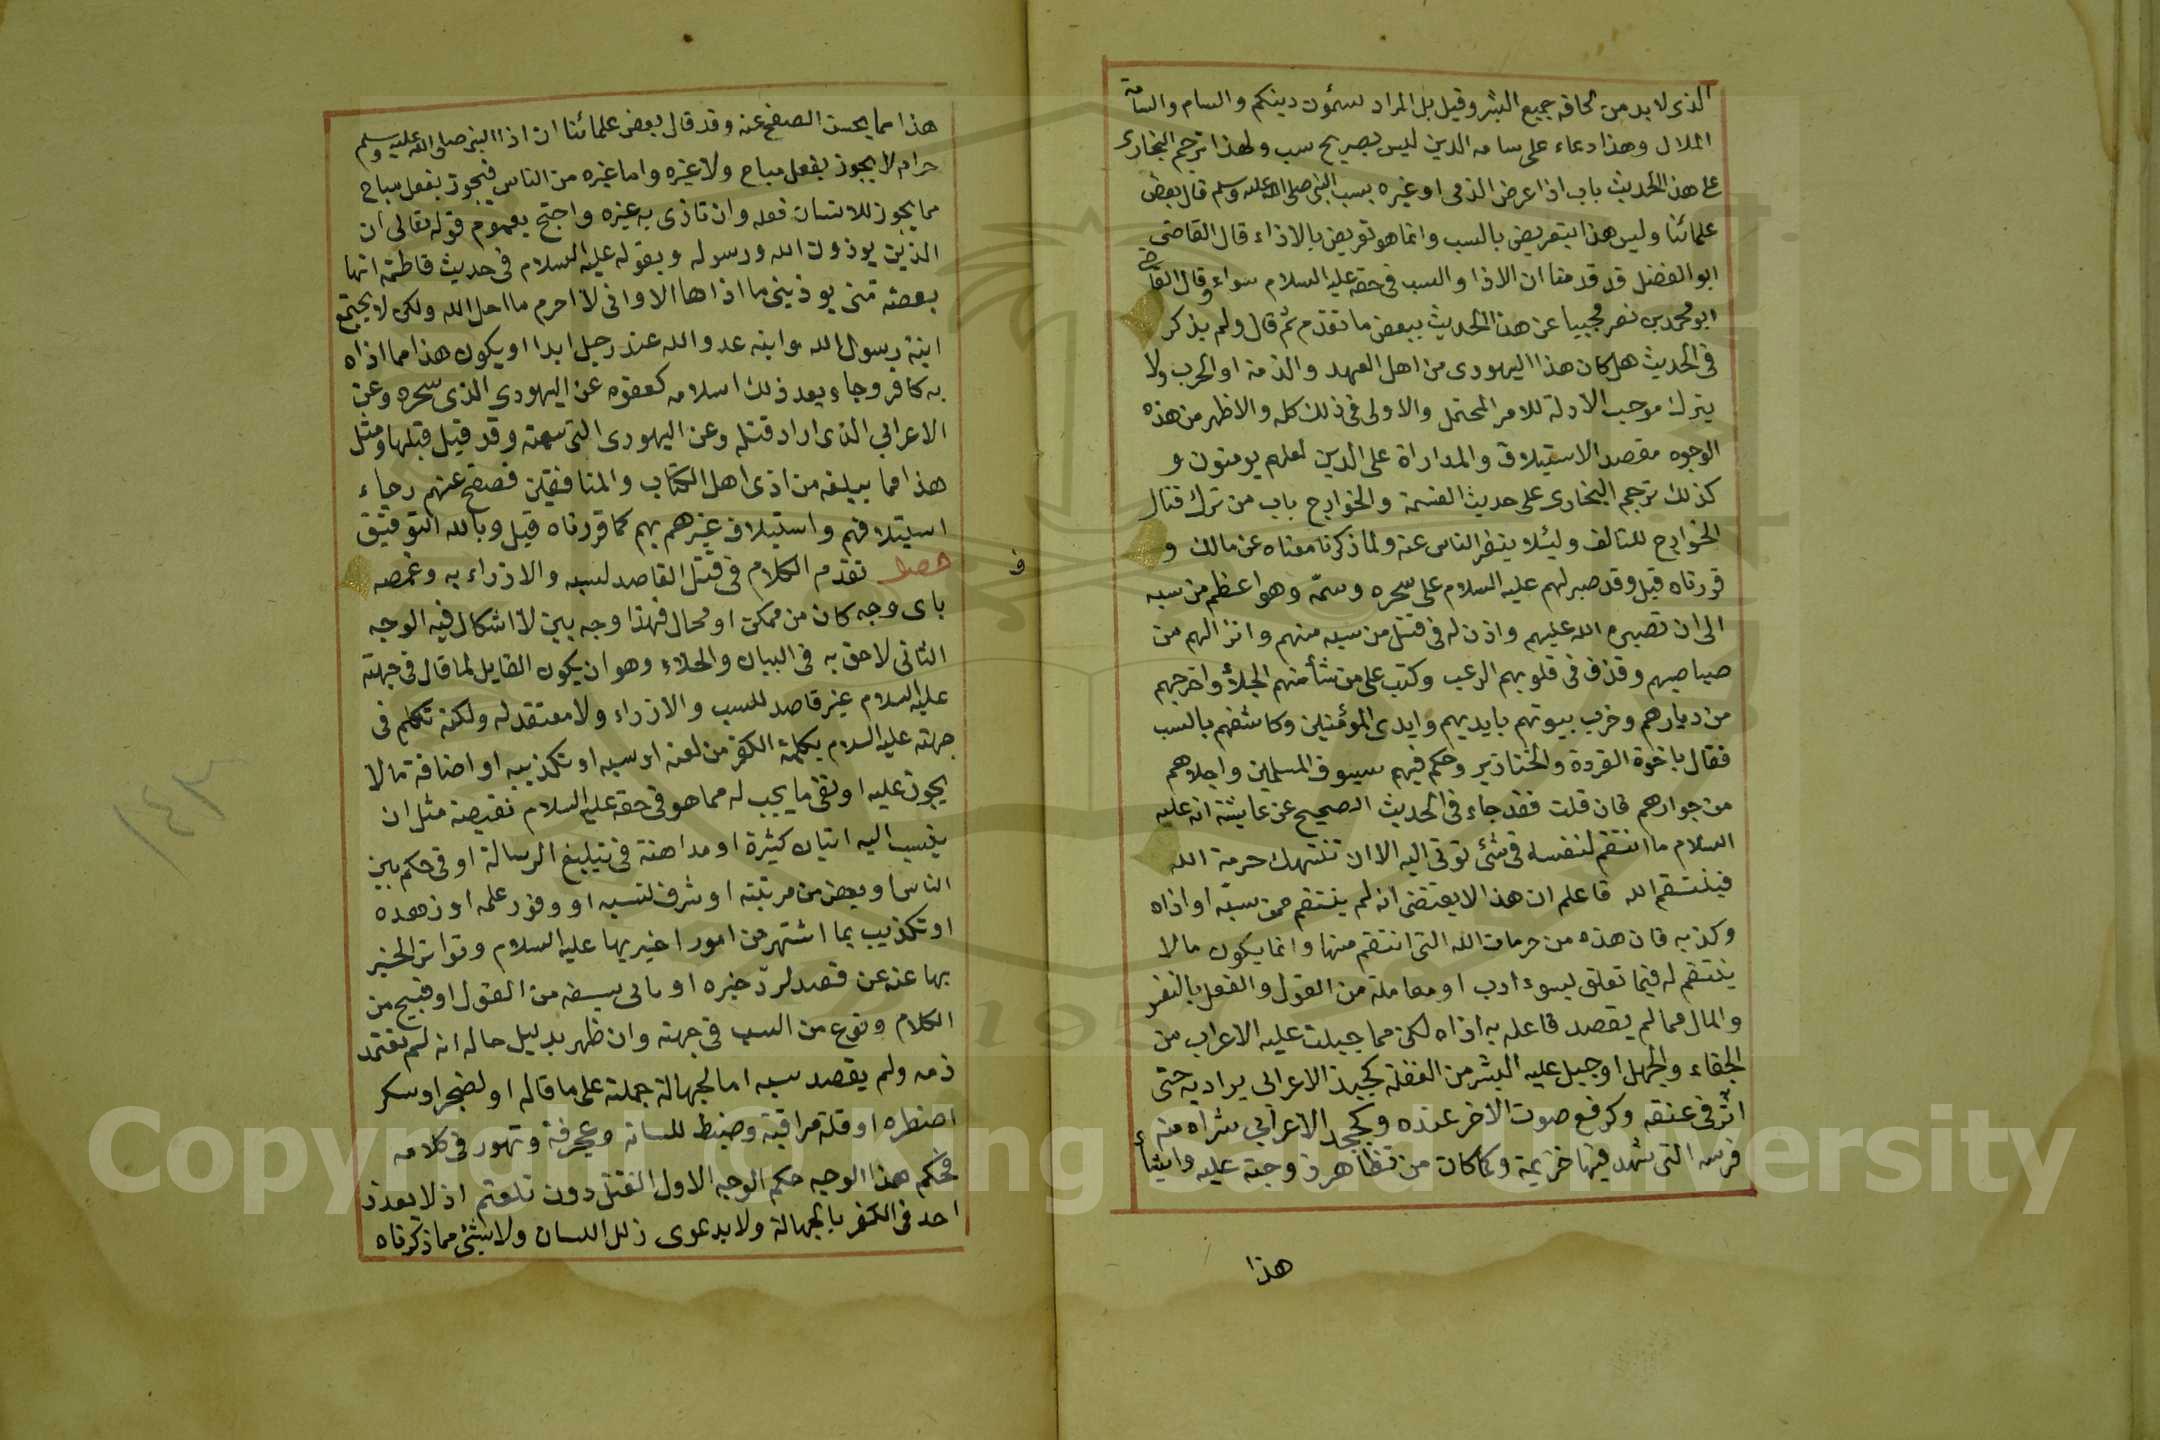 الذى لا بد من لحاقه جميع البشر وقيل بل المراد تسئمون دينكم والسام والسآمة
الملال وهذا دعاء على سامه الدين ليس بصريح سب ولهذا ترجم البخارى
على هذا الحديث باب اذا عرض الذمى او غيره بسب النبى صلى الله عليه وسلم قال بعض
علمائنا وليس هذا بتعريض بالسب وانما هو تعريض بالاذاء قال القاضى
ابو الفضل قد قدمنا ان الاذا والسب فى حقه عليه السلام سواء وقال القاضى
ابو محمد بن نصر مجيبا عن هذا الحديث ببعض ما تقدم ثم قال ولم يذكر
فى الحديث هل كان هذا اليهودى من اهل العهد والذمة او الحرب ولا
يترك موجب الادلة للامر المحتمل والاولى فى ذلك كله والاظهر من هذه
الوجوه مقصد الاستيلاف والمداراة على الدين لعلهم يومنون و
كذلك ترجم البخارى على حديث القسمة والخوارج باب من ترك قتال
الخوارج للتالف ولئلا ينفر الناس عنه ولما ذكرنا معناه عن مالك و
قررناه قبل وقد صبر لهم عليه السلام على سحره وسمّه وهو اعظم من سبه
الى ان نصره الله عليهم واذن له فى قتل من سبه منهم وانزالهم من
صياصيهم وقذف فى قلوبهم الرعب وكتب على من شأ منهم الجلأ واخرجهم
من ديارهم وخرب بيوتهم بايديهم وايدى المؤمنين وكاشفهم بالسب
فقال ياخوة القردة والخنازير وحكم فيهم سيوف المسلمين واجلاهم
من جوارهم فان قلت فقد جاء فى الحديث الصحيح عن عايشة انه عليه
السلام ما انتقم لنفسه فى شئ توتى اليه الا ان تنتهك حرمة الله
فينتقم لله فاعلم ان هذا لا يقتضى انه لم ينتقم ممن سبّه او اذاه
وكذبه فان هذه من حرمات الله التى انتقم منها وانما يكون مالا
ينتقم له فيما تعلق بسوء ادب او معاملة من القول والفعل بالنفس
والمال مما لم يقصد فاعله به اذاه لكن مما جبلت عليه الاعراب من
الجفاء والجهل او جبل عليه البشر من الغفلة كجبذ الاعرابى بردايه حتى
اثّر فى عنقه وكرفع صوت الاخر عنده وكجحد الاعرابى شراه منه
فرسه التى شهد فيها خزيمة وكما كان من تظاهر زوجته عليه واشبأ
هذا
هذا مما يحسن الصفح عنه وقد قال بعض علمائنا ان اذا النبى صلى الله عليه وسلم
حرام لا يجوز بفعل مباح ولا غيره واما غيره من الناس فيجوز بفعل مباح
مما يجوز للانسان فعله وان تاذى به غيره واحتج بعموم قوله تعالى ان
الذين يوذون الله ورسوله وبقوله عليه السلام فى حديث فاطمة انها
بعضه منى يوذينى ما اذاها الا وانى لا احرم ما احل الله ولكن لا يجتمع
ابنة رسول الله وابنه عدو الله عند رجل ابدا او يكون هذا مما اذاه
به كافر وجاء بعد ذلك اسلامه كعفوه عن اليهودى الذى سحره وعن
الاعرابى الذى اراد قتله وعن اليهودى التى سمته وقد قيل قتلها ومثل
هذا مما يبلغه من اذى اهل الكتاب والمنافقين فصفح عنهم رجاء
استيلافهم واستيلاف غيرهم بهم كما قررناه قبل وبالله التوفيق
ف
فصل تقدم الكلام فى قتل القاصد لسبه والازراء به وغمصه
باى وجه كان من ممكن او محال فهذا وجه بين لا اشكال فيه الوجه
الثانى لاحق به فى البيان والجلاء وهو ان يكون القايل لما قال فى جهته
عليه السلام غير قاصد للسب والازراء ولا معتقد له ولكنه تكلم فى
جهته عليه السلام بكلمة الكفر من لعنه او سبه او تكذيبه او اضافة ما لا
يجوز عليه او نفى ما يجب له مما هو فى حقه عليه السلام نقيصة مثل ان
ينسب اليه اتيان كبيرة او مداهنة فى تبليغ الرسالة او فى حكم بين
الناس او يغض من مرتبته او شرف نسبه او وفور علمه او زهده
او تكذيب بما اشتهر من امور اخبر بها عليه السلام وتواتر الخبر
بها عنه عن قصد لردّ خبره او ياتى بسفه من القول او قبيح من
الكلام ونوع من السب فى جهته وان ظهر بدليل حاله انه لم يتعمد
ذمه ولم يقصد سبه اما لجهالة حملته على ما قاله او لضجر او سكر
اضطره او قلة مراقبة وضبط للسانه وعجرفة وتهور فى كلامه
فحكم هذا الوجه حكم الوجه الاول القتل دون تلعثم اذ لا يعذر
احد فى الكفر بالجهالة ولا بدعوى زلل اللسان ولا بشئ مما ذكرناه
١٤٣
Copyright © King Saud University
1957